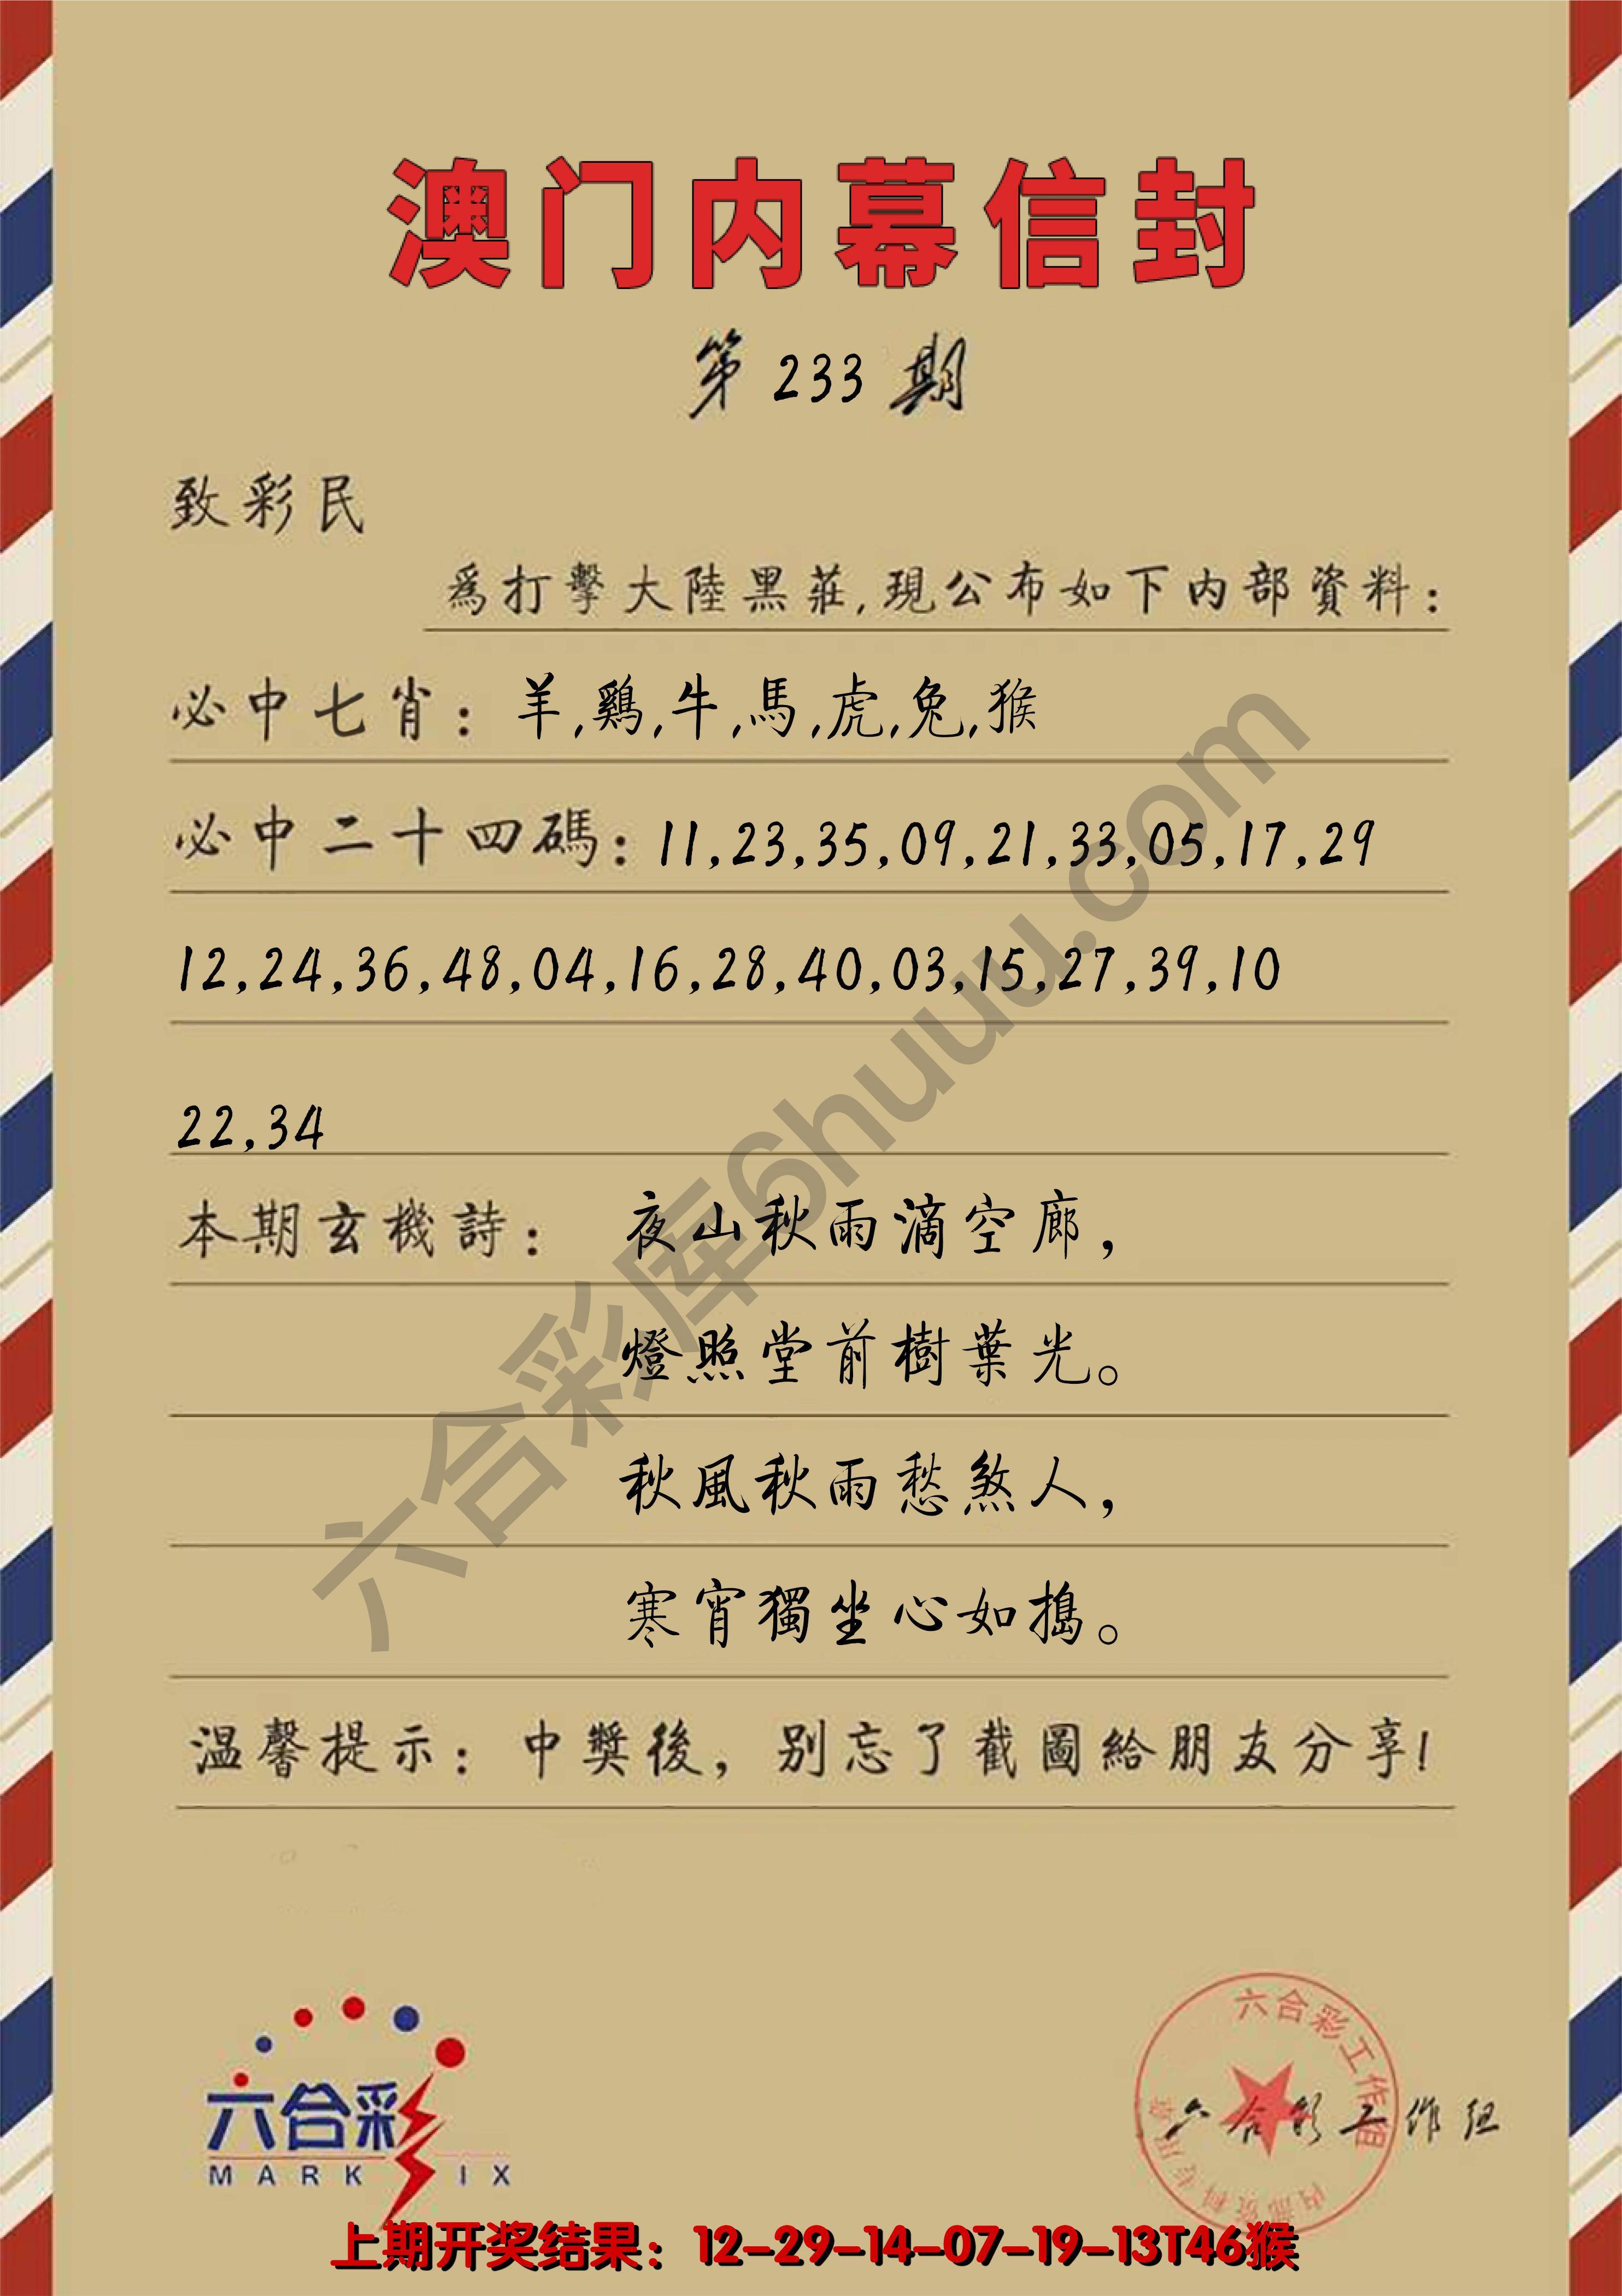 澳门内幕信封
第 233 期
致彩民
爲打擊大陸黑莊,現公布如下内部資料:
必中七肖: 羊,鷄,牛,馬,虎,兔,猴
必中二十四碼: 11,23,35,09,21,33,05,17,29
12,24,36,48,04,16,28,40,03,15,27,39,10
22,34
本期玄機詩: 夜山秋雨滴空廊,
燈照堂前樹葉光。
秋風秋雨愁煞人,
寒宵獨坐心如搗。
温馨提示: 中獎後,别忘了截圖給朋友分享!
六合彩库6huuu.com
六合彩
MARK IX
六合彩工作组
内部资料专用章
六合彩工作组
上期开奖结果：12-29-14-07-19-13T46猴